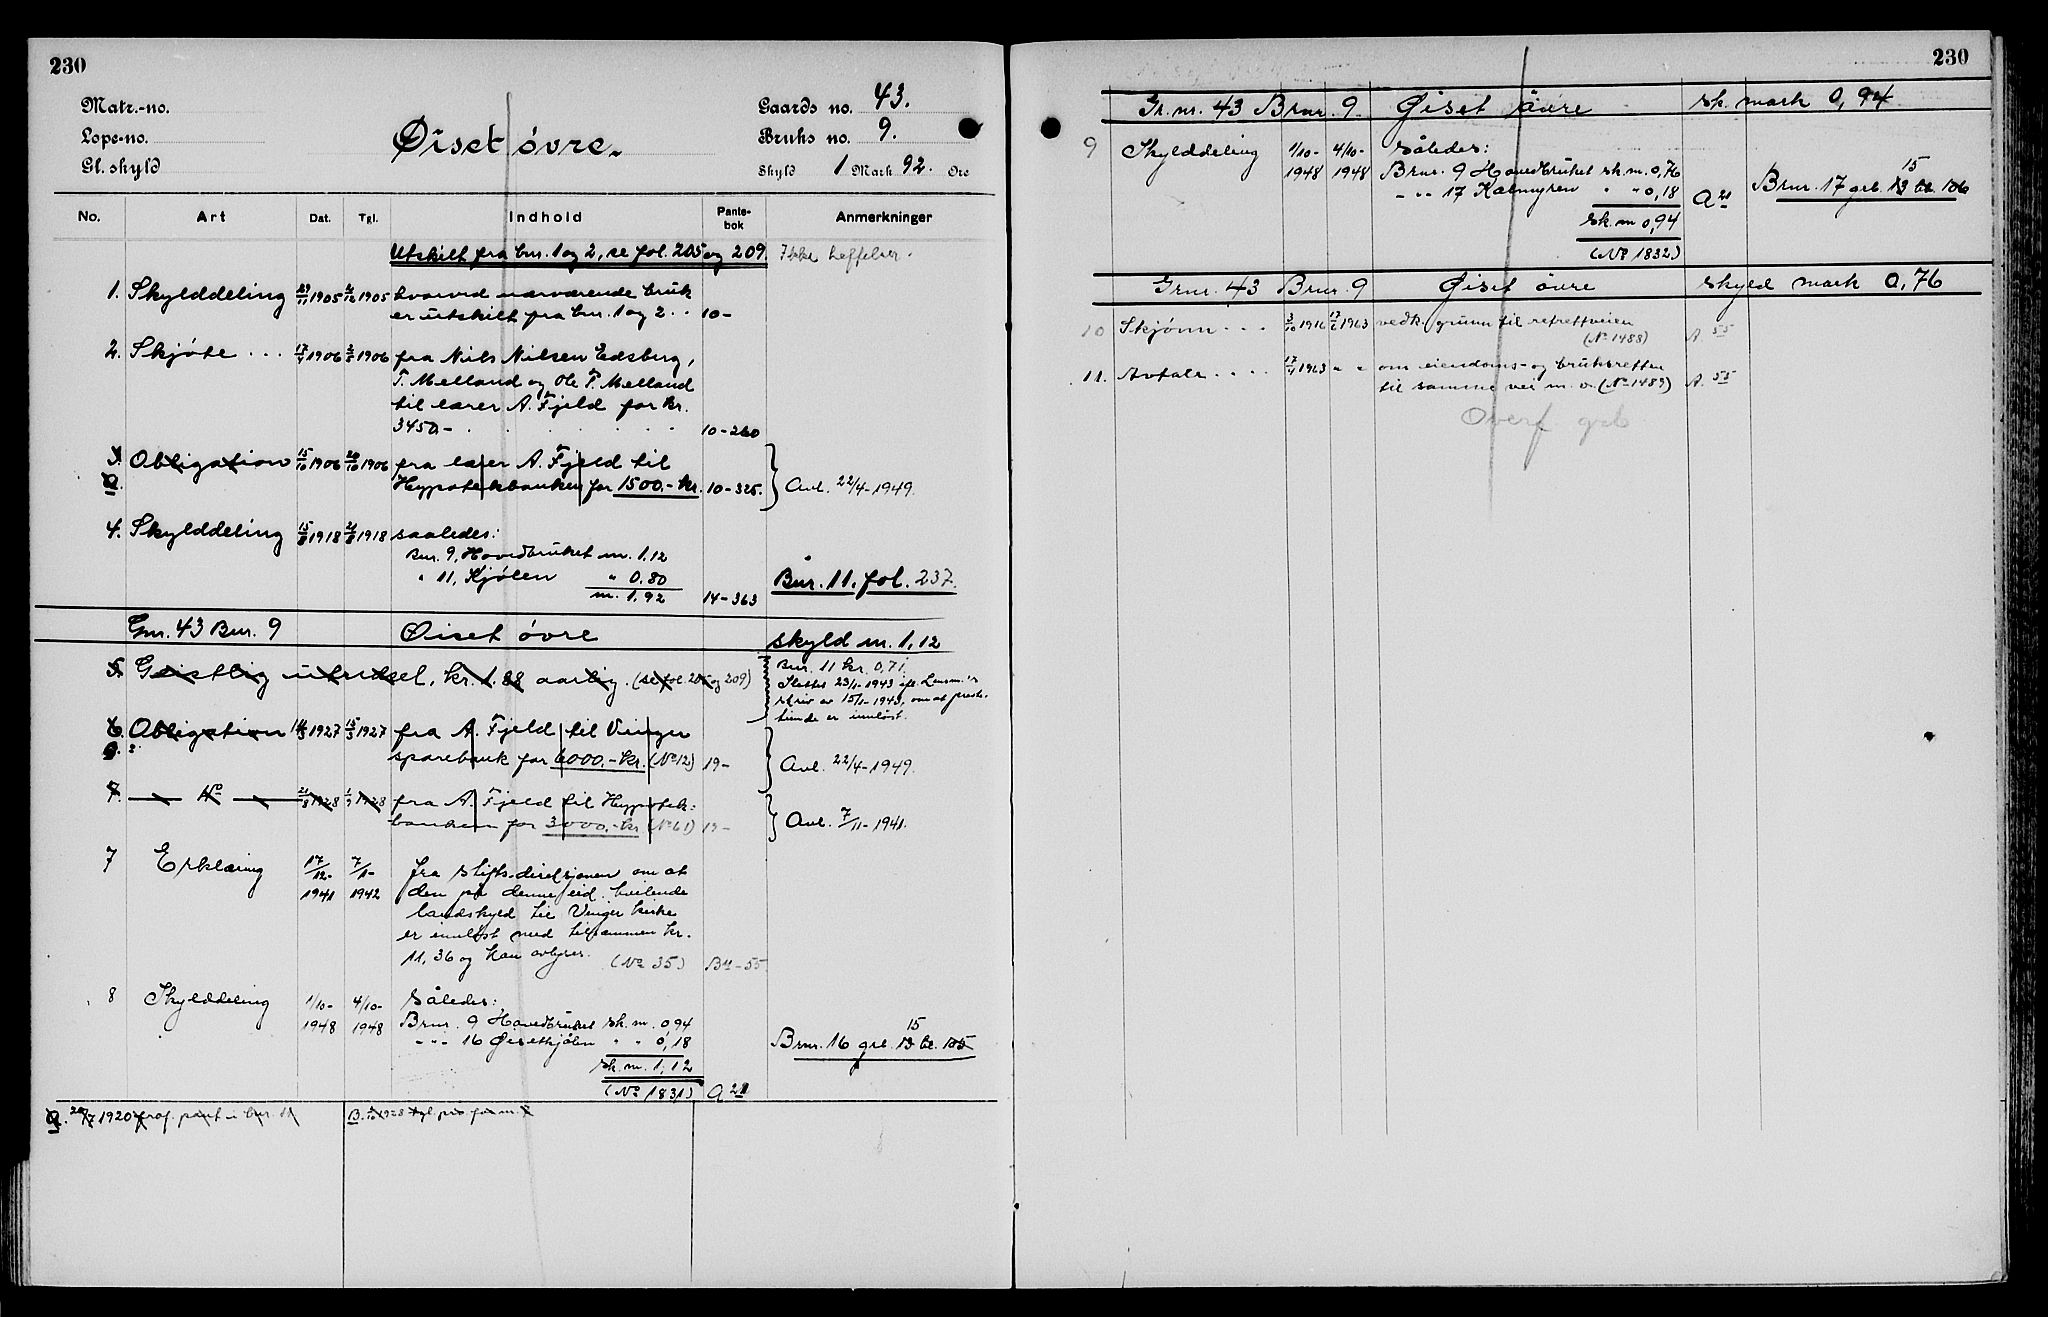 230
Matr.-no.
Lope-no.
Gl. skyld
Øiset øvre.
Gaards no. 43.
Bruks no. 9.
Skyld 1 Mark 92. Øre
No. Art Dat. Tgl. Indhold Pante-bok Anmerkninger
Utskilt fra bnr. 1 og 2, se fol. 205 og 209. Ikke heftelser.
1. Skylddeling 29/11 1905 1905 hvorved nærværende bruk
er utskilt fra bnr. 1 og 2 . . 10-
2. Skjøte . . . 17/4 1906 2/5 1906 fra Nils Nilsen Edsberg,
T. Melland og Ole P. Melland
til lærer A. Fjeld for kr.
3450.- 10-260
3. Obligation 15/10 1906 20/10 1906 fra lærer A. Fjeld til
a. Hypotekbanken for 1500.- kr. 10-325. Avl. 22/4-1949.
4. Skylddeling 15/8 1918 21/8 1918 saaledes:
Bnr. 9, Hovedbruket m. 1,12
" 11, Kjølen " 0.80
m. 1,92 14-363
Bnr. 11. fol. 237.
Gnr. 43 Bnr. 9 Øiset øvre skyld m. 1,12
5. Geistlig utredsel, kr. 1.88 aarlig. (se fol 205 og 209)
Bnr. 11 kr. 0,71.
Slettet 23/1-1943 efter Lensm.'s
skriv av 15/1-1943, om at preste-
tiende er innløst.
6. Obligation 14/3 1927 15/3 1927 fra A. Fjeld til Vinger
sparebank for 6000.- kr. (No 12) 19- Avl. 22/4-1949.
7. — No — 21/8 1928 1/9 1928 fra A. Fjeld til Hypotek-
banken for 3000.- kr. (No 61) 19- Avl. 7/11-1941.
7 Erklæring 17/12- 7/1- fra stiftsdireksjonen om at
1941 1942 den på denne eid. hvilende
landskyld til Vinger kirke
er innløst med tilsammen kr.
11,36 og kan avlyses. (No 35) B11-55
8 Skylddeling 1/10- 4/10- Således:
1948 1948 Brnr. 9 Hovedbruket sk. m. 0,94
- " - 16 Øisetkjølen " " 0,18
sk. m. 1,12
(No 1831) A 21
15
Brnr. 16 grb. 13 bl. 105
a. 20/7 1920 fraf. pant i bnr. 11
B. 1928 tgl. pro for m.
230
Gr. nr. 43 Brnr. 9. Øiset øvre sk. mark 0,94
9 Skylddeling 1/10- 4/10- Således:
1948 1948 Brnr. 9 Hovedbruket sk. m. 0,76
- " - 17 Kalmyren " " 0,18 A 21
sk. m 0,94
(No 1832)
15
Brnr. 17 grb. 13 bl. 106
Grnr. 43 Brnr. 9 Øiset øvre skyld mark 0,76
10 Skjønn . . . 3/10 1916 17/6 1963 vedk. grunn til retrettveien
(No 1488) A 55
11. Avtale . . . . 17/4 1963 " " om eiendoms- og bruksretten
til samme vei m. v. (No 1489) A. 55
Overf. grb.